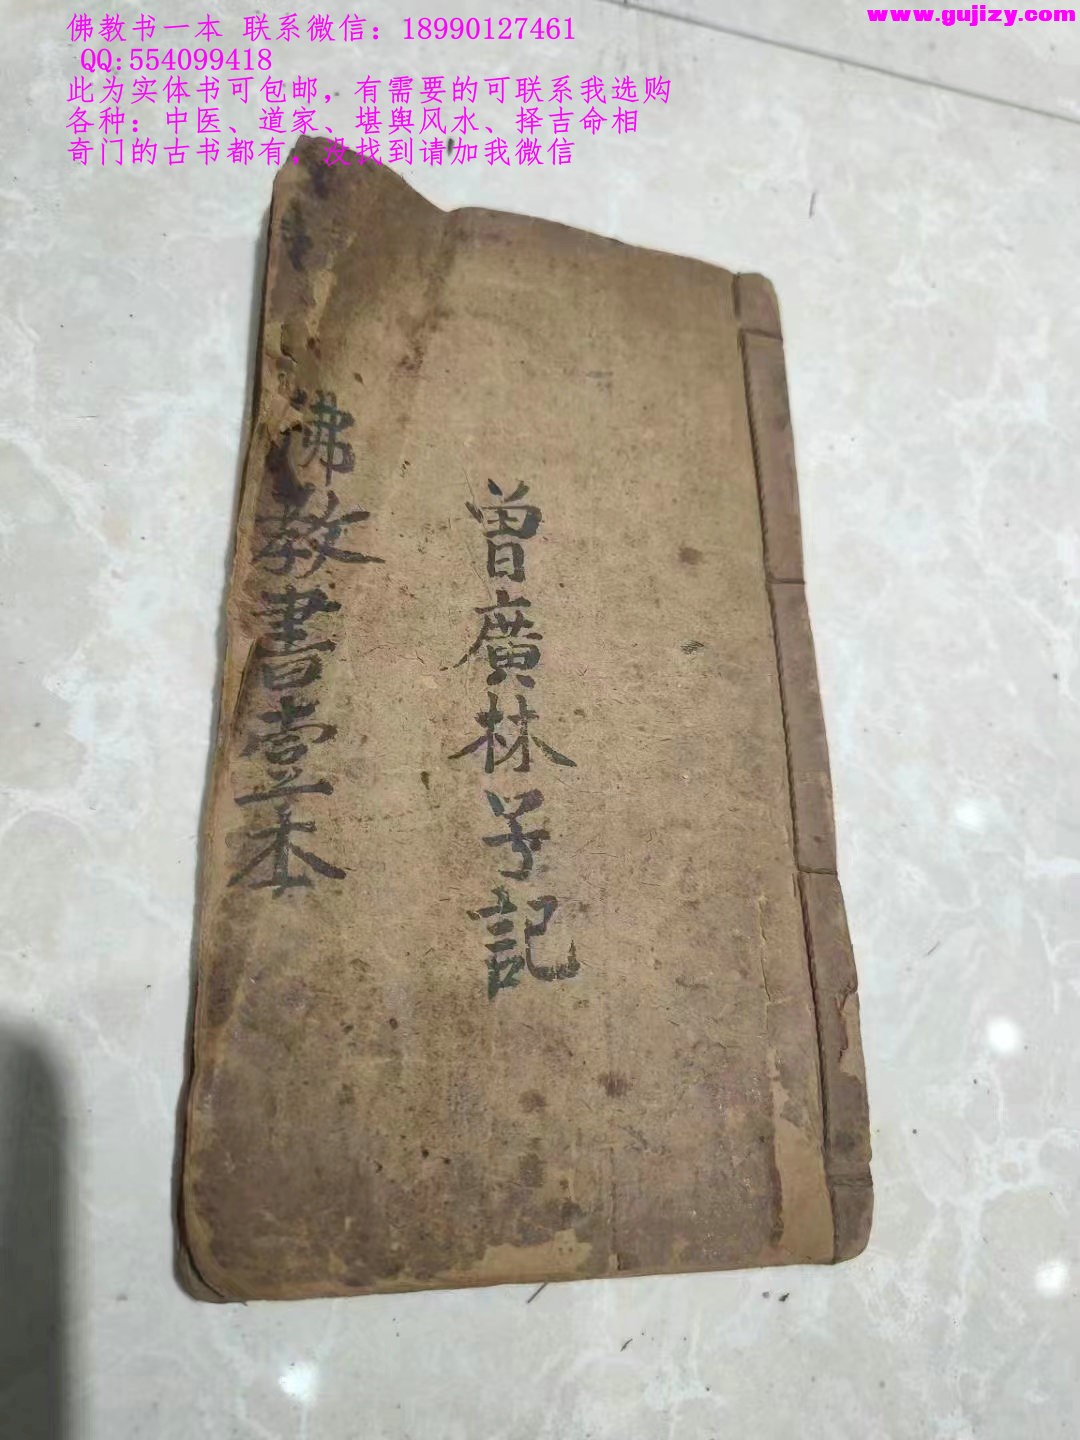 佛教书一本 联系微信：18990127461
QQ:554099418
此为实体书可包邮，有需要的可联系我选购
各种：中医、道家、堪舆风水、择吉命相
奇门的古书都有，没找到请加我微信
www.gujizy.com
曾廣林子記
佛教書壹本